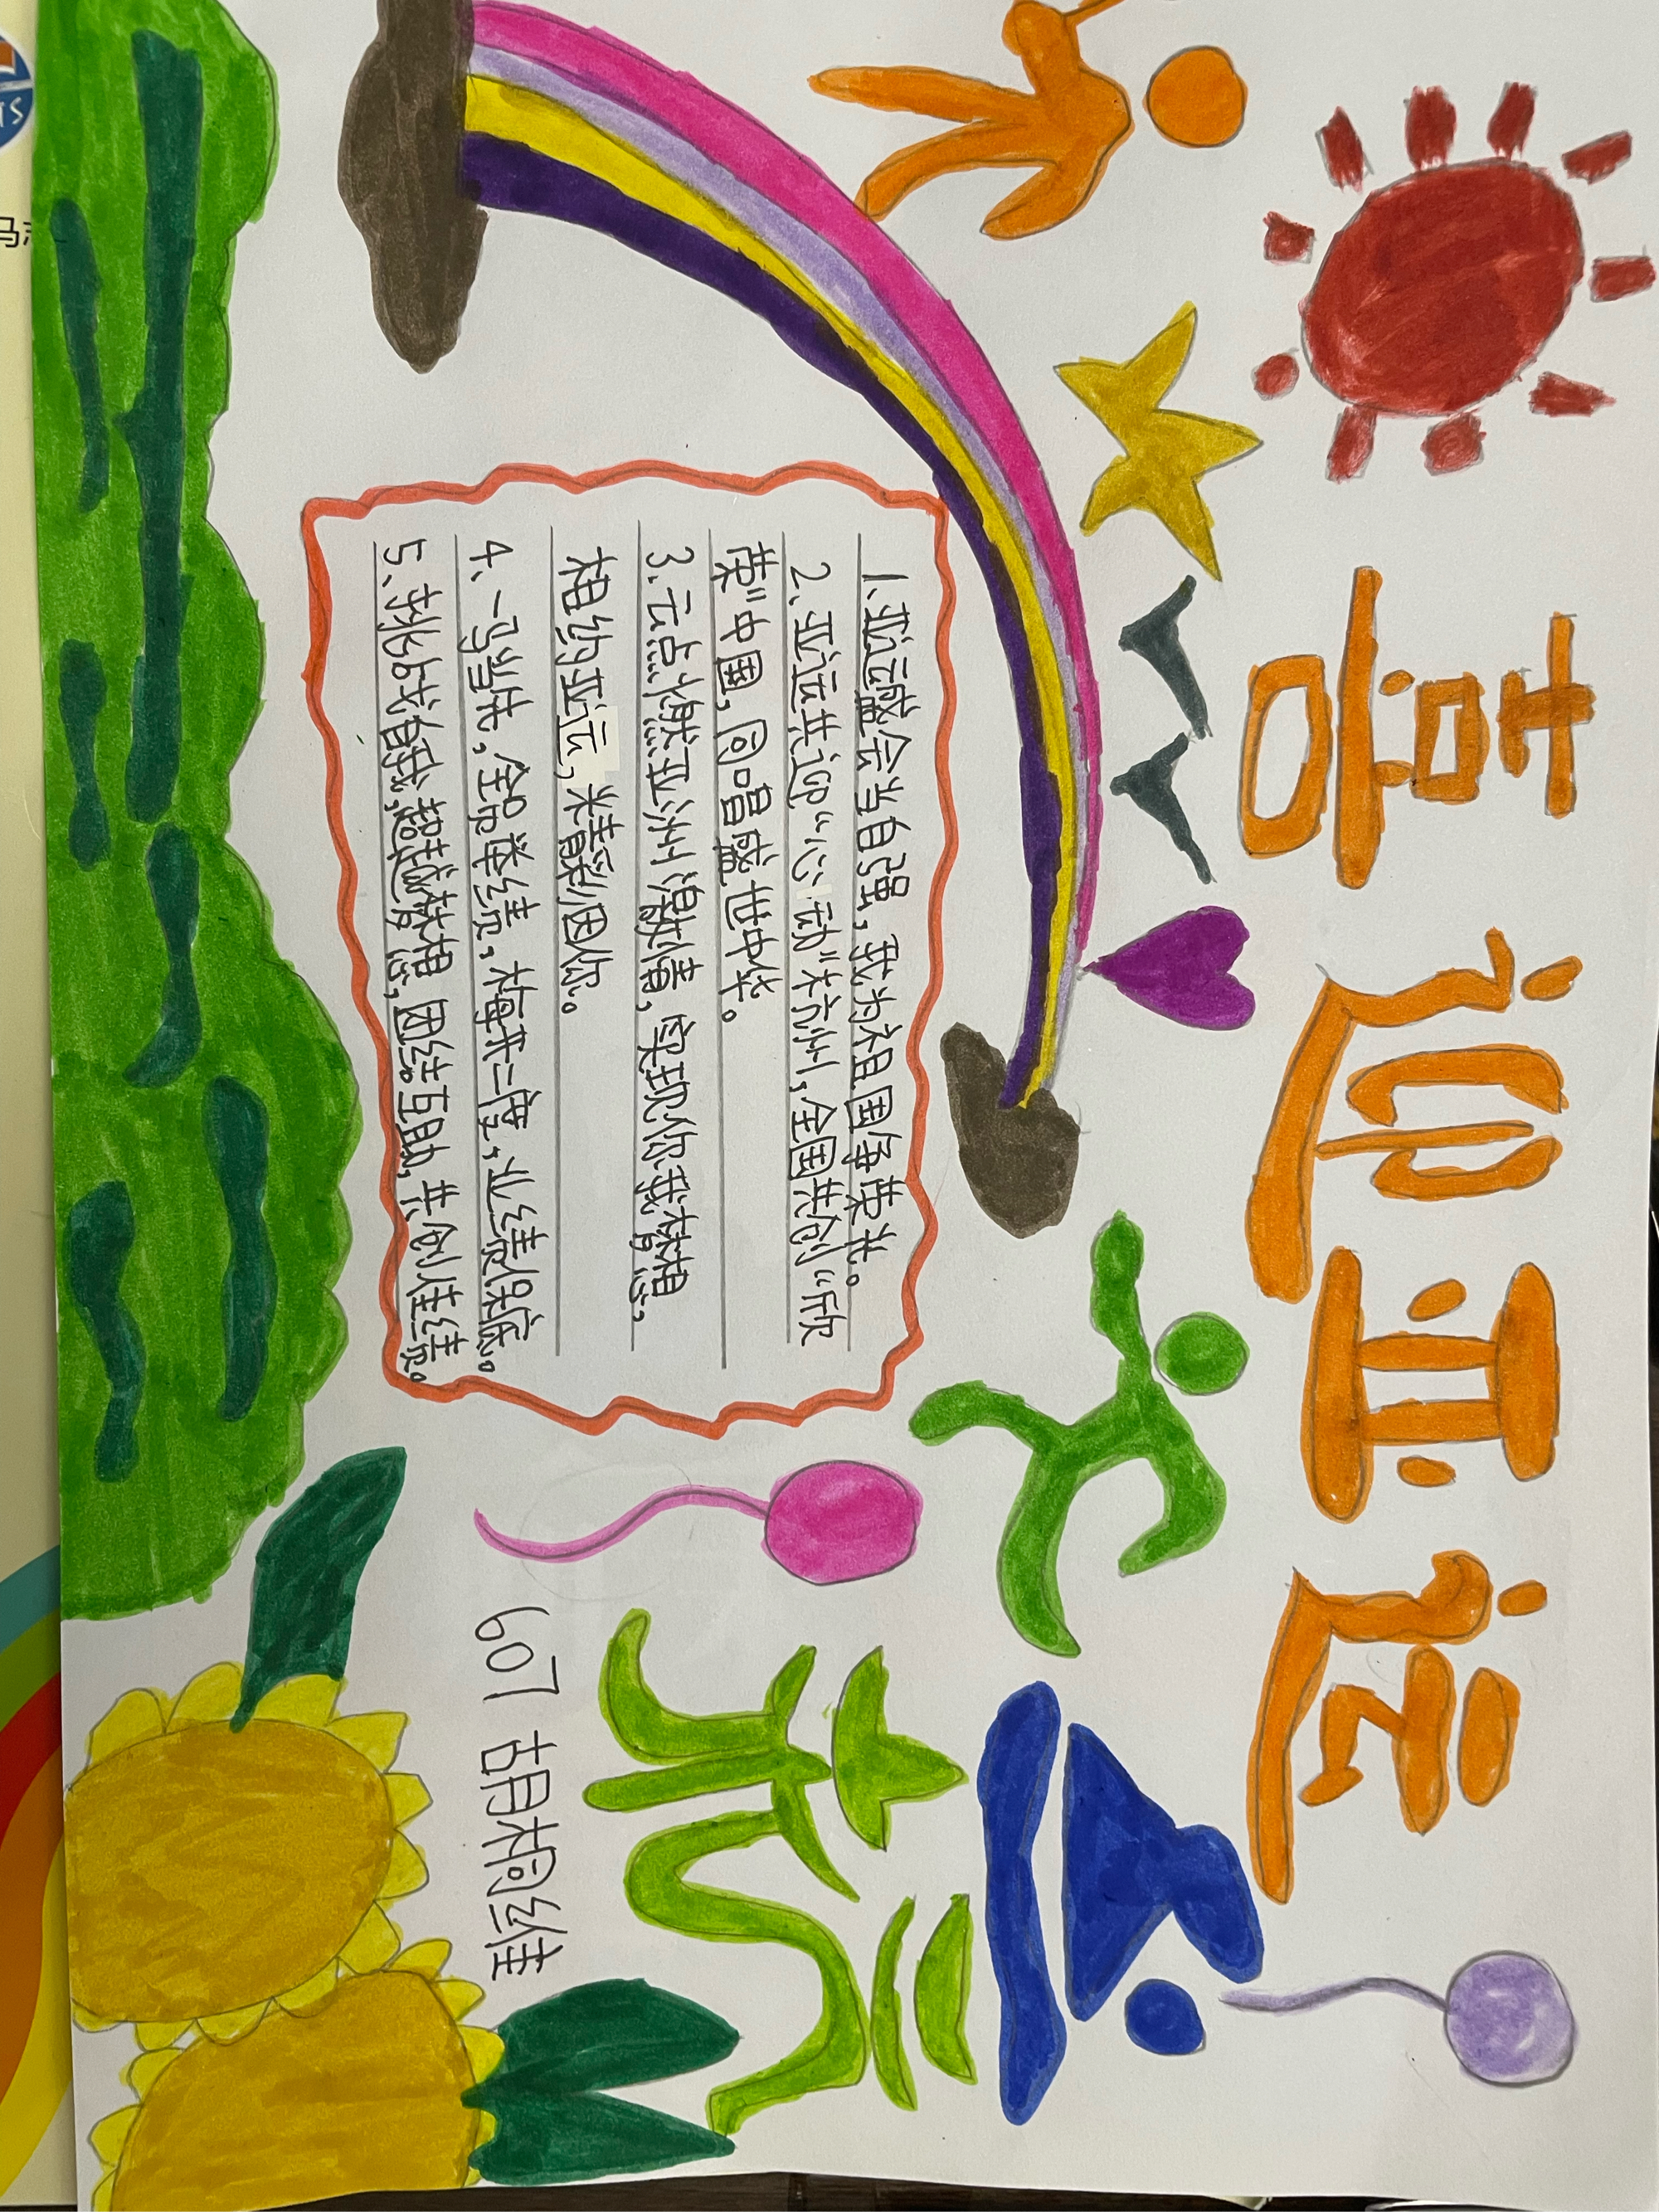 喜迎亚运
1.亚运盛会当自强，我为祖国争荣光。
2、亚运共迎“心动”杭州，全国共创“欣
荣”中国，同唱盛世中华。
3.云点燃亚洲激情，实现你我梦想，
相约亚运，精彩因你。
4、一马当先，全员举绩，梅开二度，业绩保底。
5、挑战自我，超越梦想 团结互助，共创佳绩。
杭
607 胡桐维